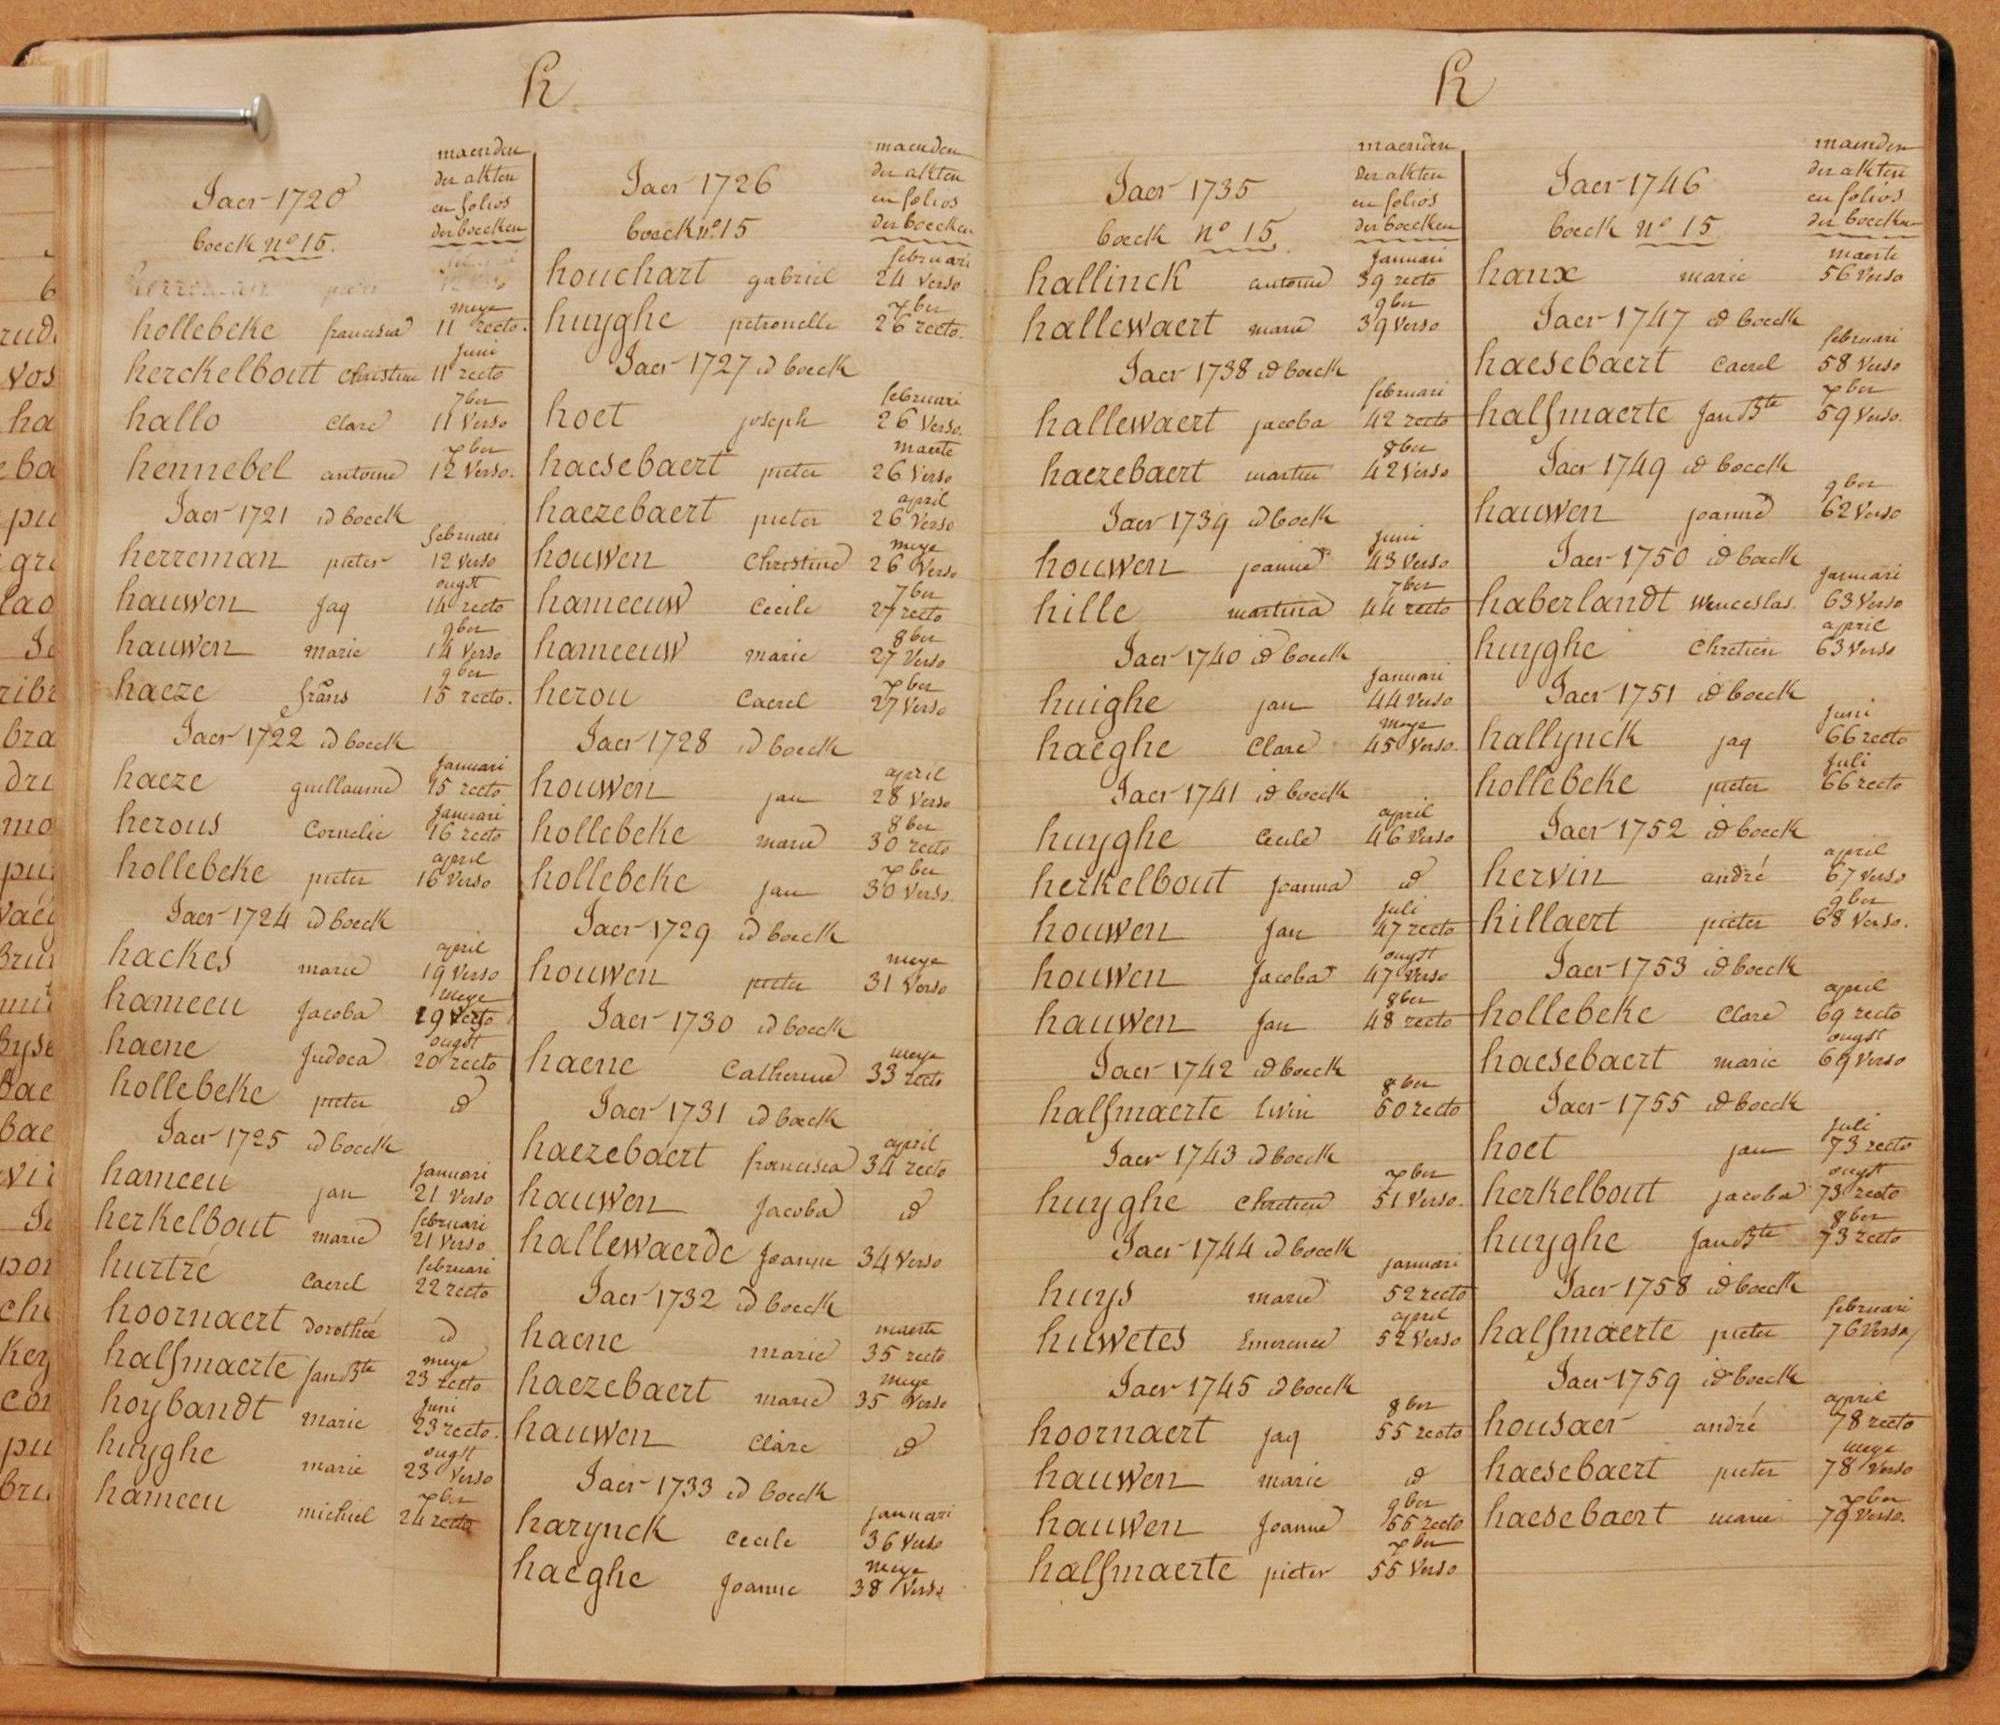 H
maenden
der akten
en folios
der boecken
Jaer 1720
boeck nº 15.
herreman pieter
hollebeke francisca meye 11 recto.
herckelbout christine juni 11 recto
hallo Clare 7ber 11 Verso
hennebel antoine xber 12 Verso.
Jaer 1721 id boeck
herreman pieter februari 12 Verso
hauwen Jaq ougst 14 recto
hauwen marie 9ber 14 Verso
haeze frans 9ber 15 recto.
Jaer 1722 id boeck
haeze guillaume Januari 15 recto
herous Cornelie Januari 16 recto
hollebeke pieter april 16 Verso
Jaer 1724 id boeck
hackes marie april 19 Verso
hameeu Jacoba meye 19 Verso
haene Judoca ougst 20 recto
hollebeke pieter id
Jaer 1725 id boeck
hameeu jan Januari 21 Verso
herkelbout marie februari 21 Verso
hurtré Caerel februari 22 recto
hoornaert dorothée id
halfmaerte Jan Bte meye 23 recto
hoybandt marie juni 23 recto.
huyghe marie ougst 23 Verso
hameeu michiel xber 24 recto
maenden
der akten
en folios
der boecken
Jaer 1726
boeck nº 15
houchart gabriel februari 24 Verso
huyghe petronelle xber 26 recto.
Jaer 1727 id boeck
hoet joseph februari 26 Verso.
haesebaert pieter maerte 26 Verso
haezebaert pieter april 26 Verso
houwen Christine meye 26 Verso
hameeuw Cecile 7ber 27 recto
hameeuw marie 8ber 27 Verso
herou Caerel xber 27 Verso
Jaer 1728 id boeck
houwen jan april 28 Verso
hollebeke marie 8ber 30 recto
hollebeke jan xber 30 Verso.
Jaer 1729 id boeck
houwen pieter meye 31 Verso
Jaer 1730 id boeck
haene Catherine meye 33 recto
Jaer 1731 id boeck
haezebaert francisca april 34 recto
hauwen Jacoba id
hallewaerde Joanne 34 Verso
Jaer 1732 id boeck
haene marie maerte 35 recto
haezebaert marie meye 35 Verso
hauwen Clare id
Jaer 1733 id boeck
harynck Cecile januari 36 Verso
haeghe Joanne meye 38 Verso
H
maenden
der akten
en folios
der boecken
Jaer 1735
boeck nº 15
hallinck antoine Januari 39 recto
hallewaert marie 9ber 39 Verso
Jaer 1738 id boeck
hallewaert jacoba februari 42 recto
haezebaert martin 8ber 42 Verso
Jaer 1739 id boeck
houwen joanne juni 43 Verso
hille martina 7ber 44 recto
Jaer 1740 id boeck
huighe jan Januari 44 Verso
haeghe Clare meye 45 Verso.
Jaer 1741 id boeck
huyghe Cecile april 46 Verso
herkelbout Joanna id
houwen Jan juli 47 recto
houwen Jacoba ougst 47 Verso
hauwen Jan 8ber 48 recto
Jaer 1742 id boeck
halfmaerte livin 8ber 50 recto
Jaer 1743 id boeck
huyghe Chretien xber 51 Verso.
Jaer 1744 id boeck
huys marie januari 52 recto
huwetes Emerence april 52 Verso
Jaer 1745 id boeck
hoornaert jaq 8ber 55 recto
hauwen marie id
hauwen Joanne 9ber 55 recto
halfmaerte pieter xber 55 Verso
maenden
der akten
en folios
der boecken
Jaer 1746
boeck nº 15
hanx marie maerte 56 Verso
Jaer 1747 id boeck
haesebaert Caerel februari 58 Verso
halfmaerte Jan Bte xber 59 Verso.
Jaer 1749 id boeck
hauwen joanne 9ber 62 Verso
Jaer 1750 id boeck
haberlandt Wenceslas. januari 63 Verso
huyghe Chretien april 63 Verso
Jaer 1751 id boeck
hallynck jaq juni 66 recto
hollebeke pieter juli 66 recto
Jaer 1752 id boeck
hervin andré april 67 Verso
hillaert pieter 9ber 68 Verso.
Jaer 1753 id boeck
hollebeke Clare april 69 recto
haesebaert marie ougst 69 Verso
Jaer 1755 id boeck
hoet jan juli 73 recto
herkelbout jacoba ougst 73 recto
huyghe Jan Bte 8ber 73 recto
Jaer 1758 id boeck
halfmaerte pieter februari 76 Verso
Jaer 1759 id boeck
housaer andré april 78 recto
haesebaert pieter meye 78 Verso
haesebaert marie xber 79 Verso.